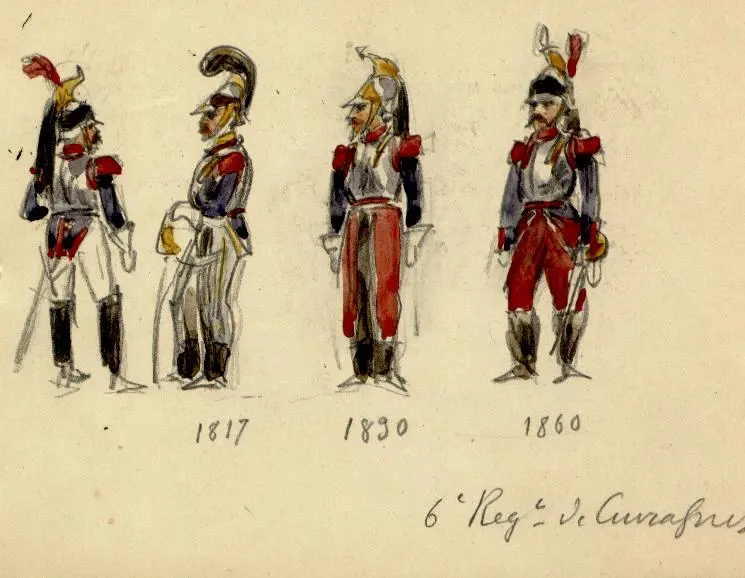 1817 1830 1860
6e Regt de Cuirassiers